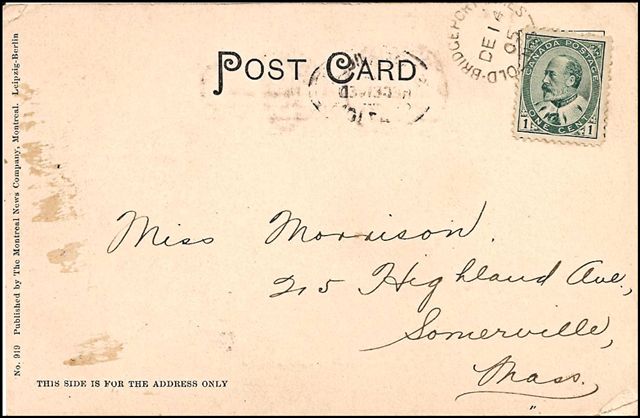 POST CARD
OLD-BRIDGEPORT MINES
DE 14
05
CANADA POSTAGE
1 ONE CENT 1
RECEIVED
Miss Morrison.
215 Highland Ave.,
Somerville,
Mass.
THIS SIDE IS FOR THE ADDRESS ONLY
No. 919 Published by The Montreal News Company, Montreal. Leipzig-Berlin